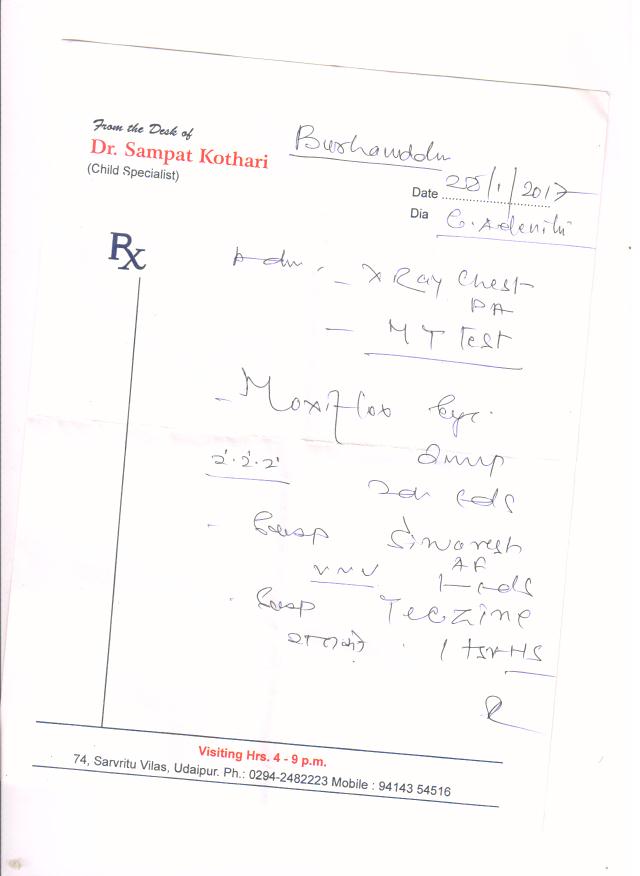 From the Desk of
Dr. Sampat Kothari
(Child Specialist)
Burhanuddin
Date 28/1/2017
Dia C. Adenitis
Rx
Adv. - X Ray Chest
PA
- MT Test
- Moxiflox
2'. 2'. 2'
- Susp Sinarest
AF
- Susp Teczine
रात को 1 tsf HS
Visiting Hrs. 4 - 9 p.m.
74, Sarvritu Vilas, Udaipur. Ph.: 0294-2482223 Mobile : 94143 54516